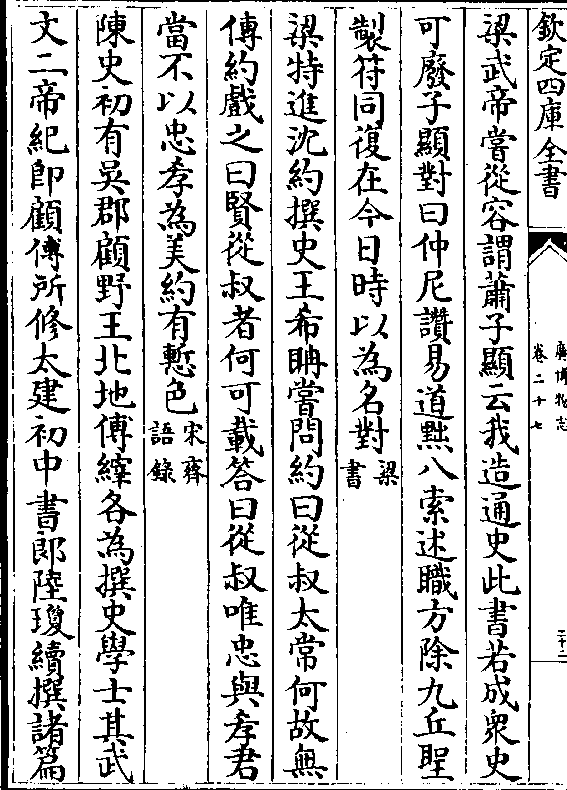 欽定四庫全書
廣博物志
卷二十七
梁武帝嘗從容謂蕭子顯云我造通史此書若成衆史
可廢子顯對曰仲尼讚易道黜八索述職方除九丘聖
製符同復在今日時以為名對梁書
梁特進沈約撰史王希聃嘗問約曰從叔太常何故無
傳約戲之曰賢從叔者何可載答曰從叔唯忠與孝君
當不以忠孝為美約有慙色宋齊語錄
陳史初有吳郡顧野王北地傅縡各為撰史學士其武
文二帝紀即顧傅所修太建初中書郎陸瓊續撰諸篇